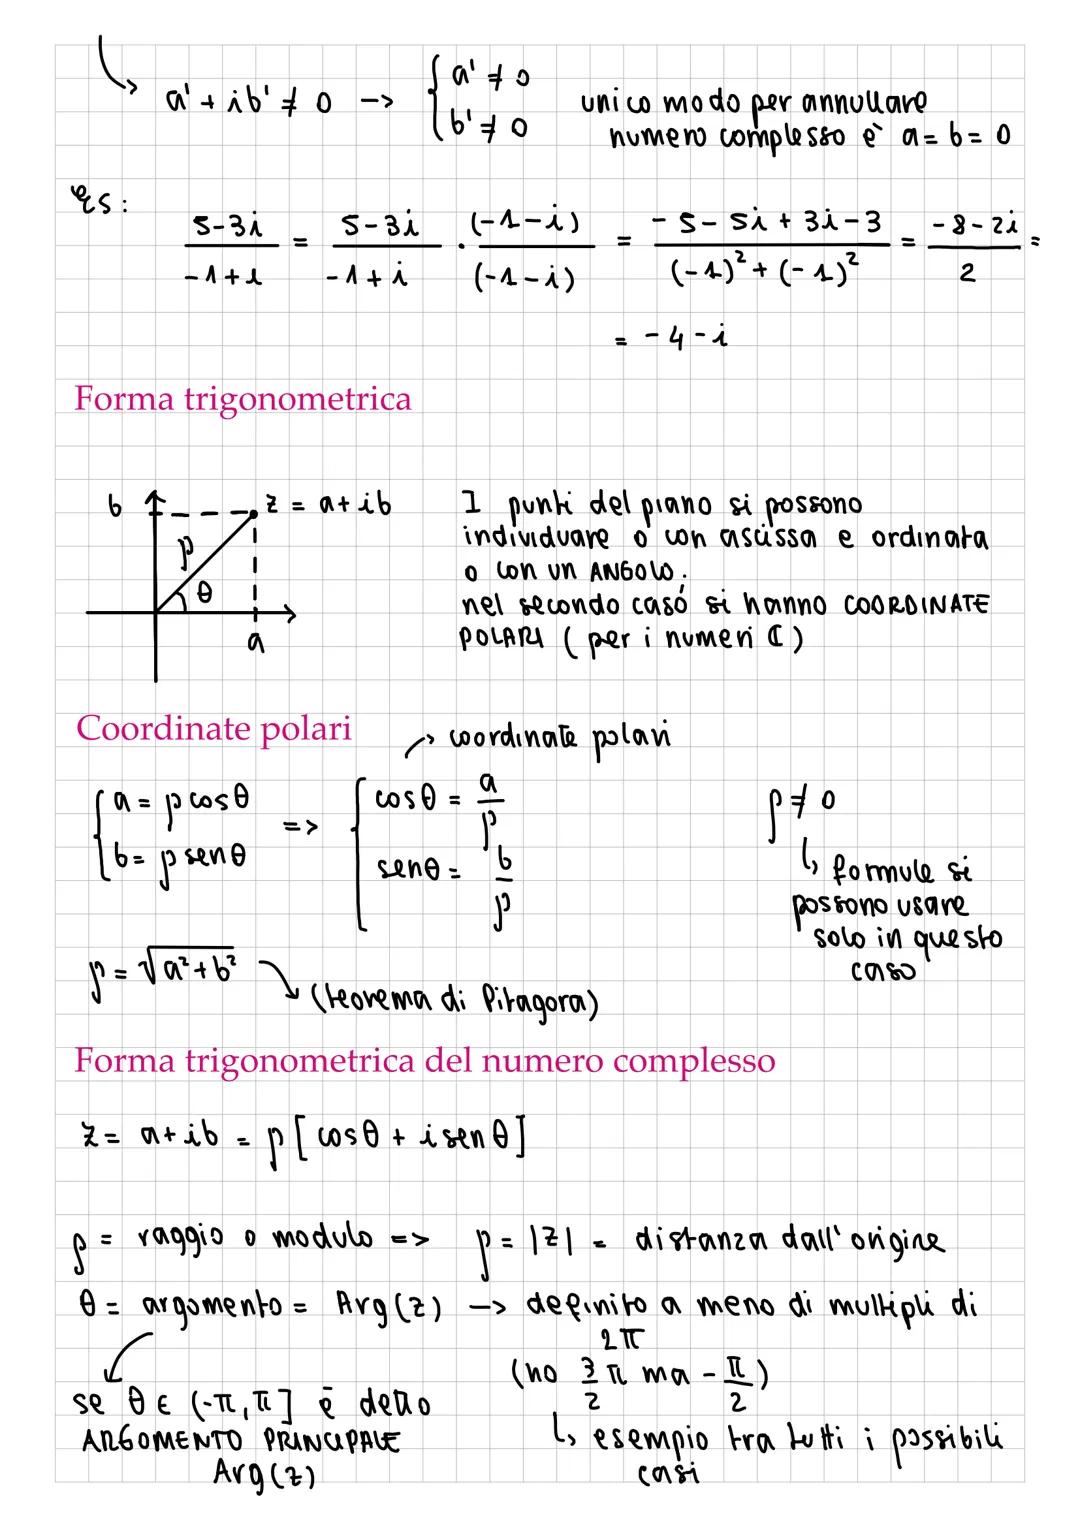 a' + ib' ≠ 0 -> { a' ≠ 0
b' ≠ 0
unico modo per annullare
numero complesso è a = b = 0
es:
5-3i / -1+i = 5-3i / -1+i · (-1-i) / (-1-i) = -5-5i+3i-3 / (-1)² + (-1)² = -8-2i / 2 =
= -4-i
Forma trigonometrica
b
z = a+ib
ρ
θ
a
I punti del piano si possono
individuare o con ascissa e ordinata
o con un ANGOLO.
nel secondo caso si hanno COORDINATE
POLARI (per i numeri ℂ)
Coordinate polari
-> coordinate polari
{ a = ρ cosθ
b = ρ senθ
=>
{ cosθ = a/ρ
senθ = b/ρ
ρ ≠ 0
↳ formule si
possono usare
solo in questo
caso
ρ = √a²+b²
(teorema di Pitagora)
Forma trigonometrica del numero complesso
z = a+ib = ρ[cosθ + i senθ]
ρ = raggio o modulo => ρ = |z| = distanza dall'origine
θ = argomento = Arg(z) -> definito a meno di multipli di
2π
(no 3/2 π ma - π/2)
↳ esempio tra tutti i possibili
casi
se θ ∈ (-π, π] è detto
ARGOMENTO PRINCIPALE
Arg(z)